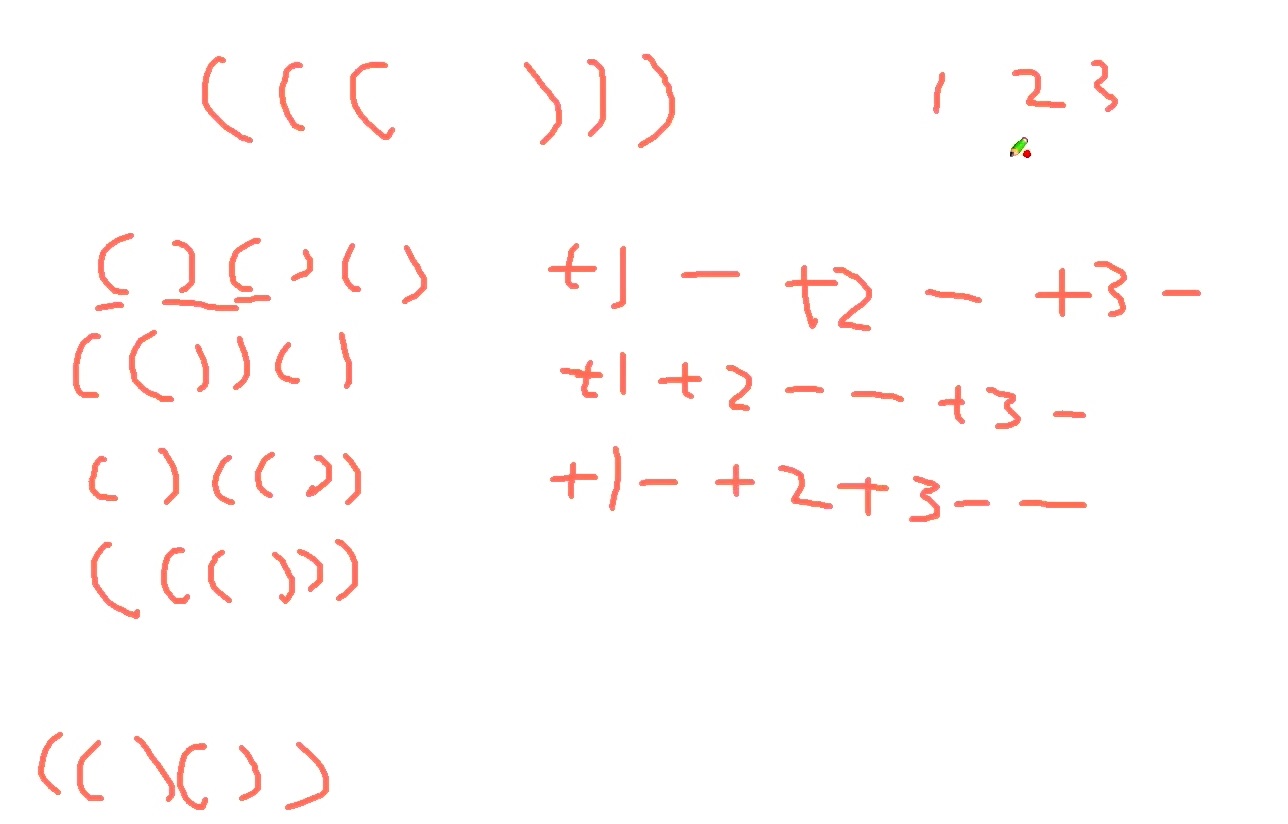 ((( ))) 1 2 3
()()() +1 - +2 - +3 -
(())() +1 +2 - - +3 -
()(()) +1 - +2 +3 - -
((()))
(()())